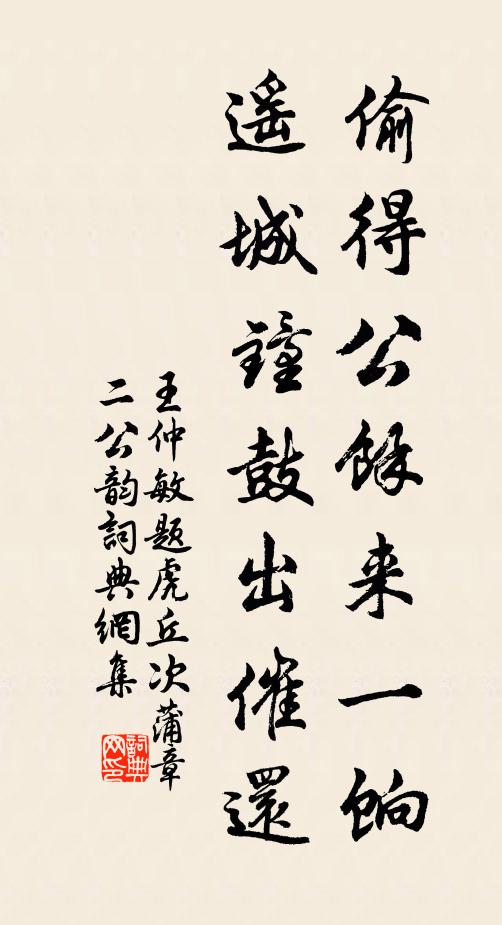 偷得公餘来一餉
遥城鐘鼓出催還
王仲敏題虎丘次蒲章
二公韵詞典網集
詞典網印